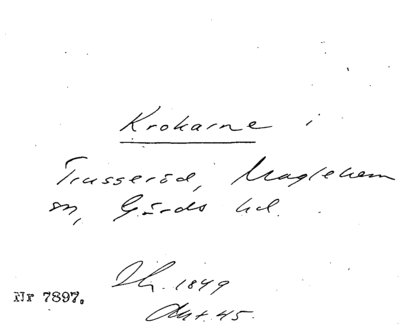 Krokarne i
Trusseröd, Maglehem
sn, Gärds hd.
Lh. 1849
Akt. 45.
Nr 7897.